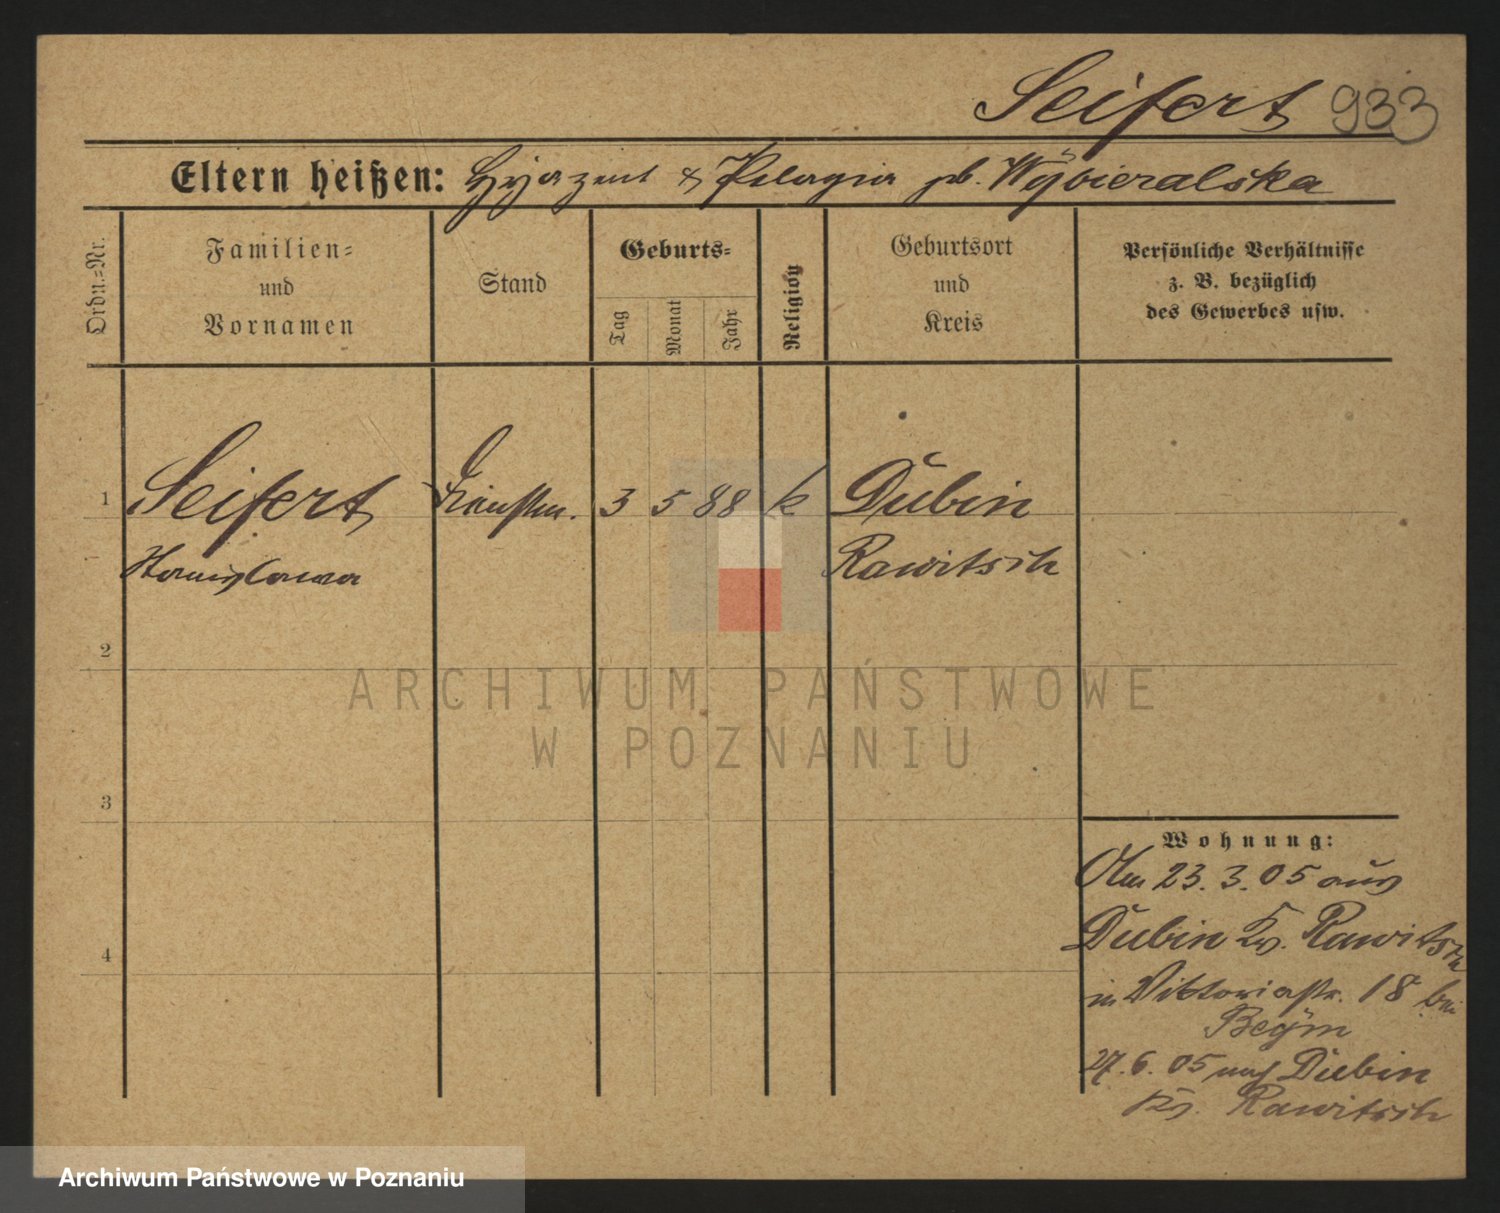 Seifert 933
Eltern heißen: Hyazent & Pelagia gb. Wybieralska
Ordn.=Nr.
Familien=
und
Vornamen
Stand
Geburts=
Tag
Monat
Jahr
Religion
Geburtsort
und
Kreis
Persönliche Verhältnisse
z. B. bezüglich
des Gewerbes usw.
1 Seifert 3 5 88 k Dubin
Stanislawa Rawitsch
2
3
4
Wohnung:
Am 23. 3. 05 aus
Dubin Kr. Rawitsch
in Viktoriastr. 18 bei
Beym
27. 6. 05 nach Dubin
Kr. Rawitsch
ARCHIWUM PAŃSTWOWE
W POZNANIU
Archiwum Państwowe w Poznaniu